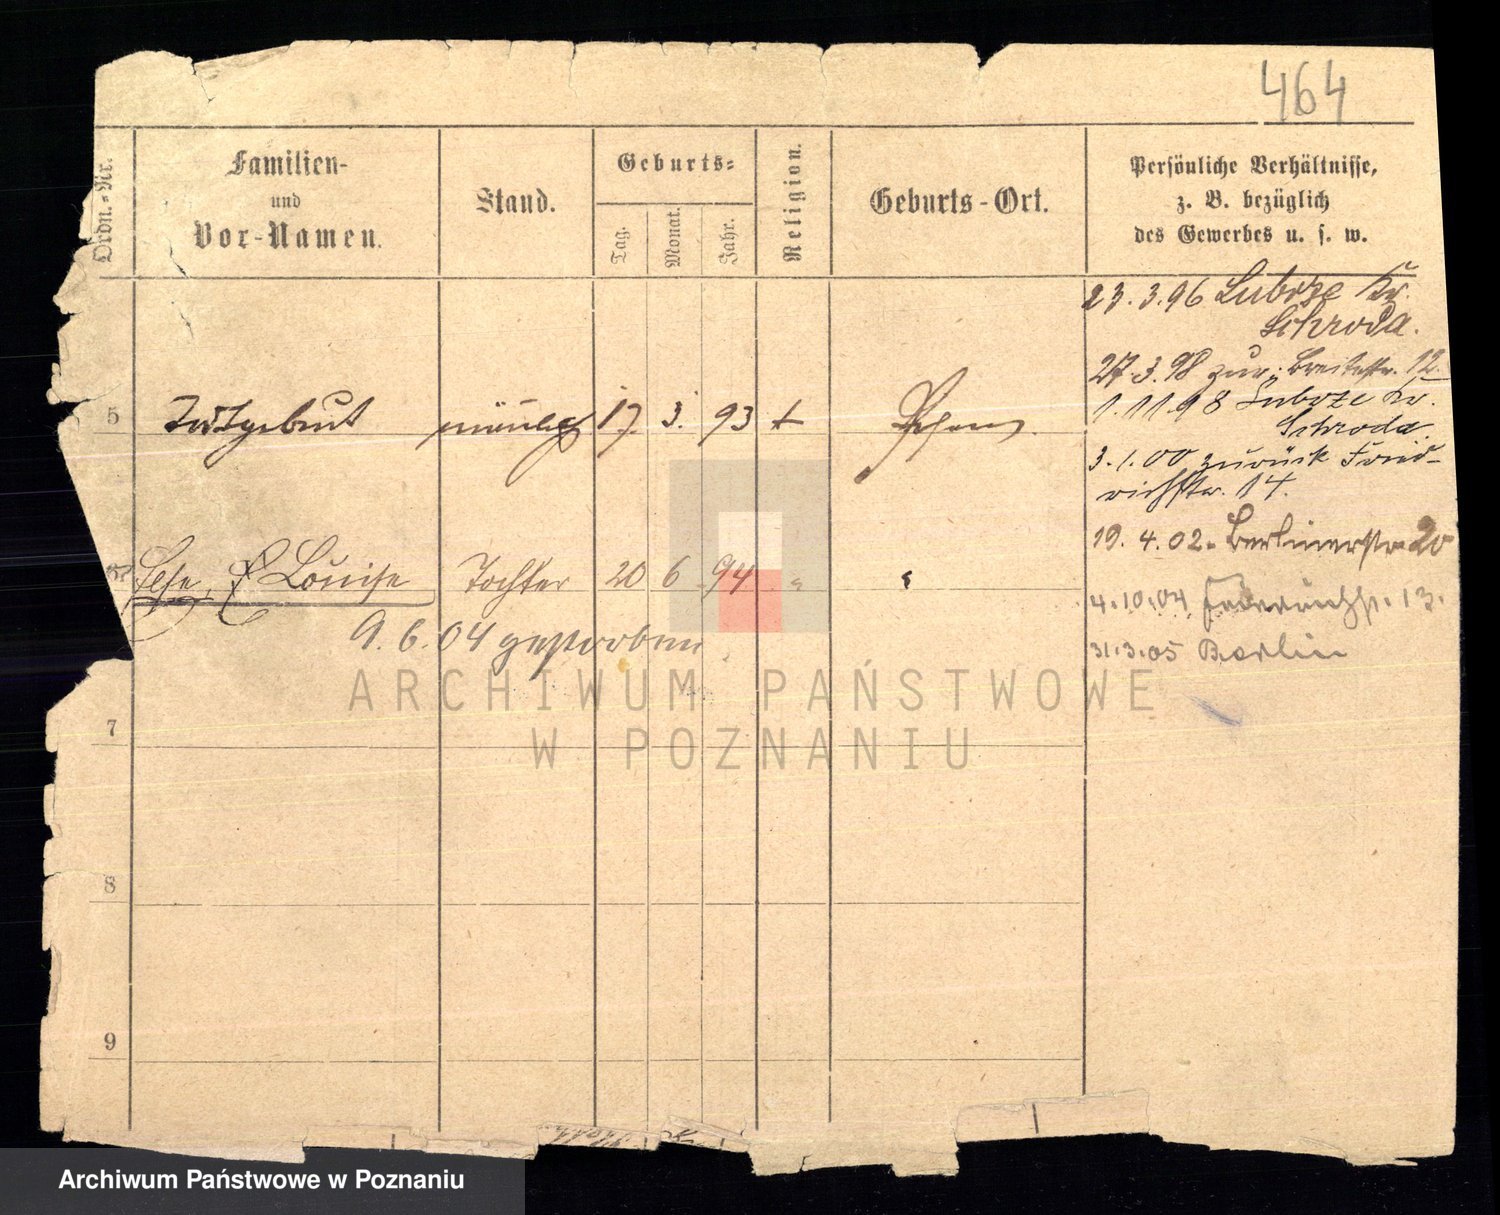 464
Ordn.-Nr.
Familien-
und
Vor-Namen.
Stand.
Geburts-
Tag.
Monat.
Jahr.
Religion.
Geburts-Ort.
Persönliche Verhältnisse,
z. B. bezüglich
des Gewerbes u. s. w.
23.3.96 Luboze Kr.
Schroda.
27.3.98 zur. Breitestr. 12.
1.11.98 Luboze Kr.
Schroda.
3.1.00 zurück Fried-
richstr. 14.
5 Totgeburt männlich 17. 3. 93 + Posen
19.4.02. Berlinerstr. 20
Else, Louise Tochter 20 6 94 " "
4.10.04 13.
9.6.04 gestorben
31.3.05 Berlin
ARCHIWUM PAŃSTWOWE
W POZNANIU
7
8
9
Archiwum Państwowe w Poznaniu